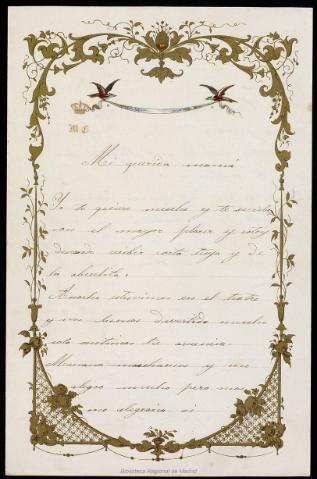 M C
Mi querida mamá
Yo te quiero mucho y te escribo
con el mayor placer y estoy
deseando recibir carta tuya y de
la abuelita.
Anoche estuvimos en el teatro
y nos hemos divertido mucho
solo sentimos tu ausencia
Manana marchamos y me
alegro mucho pero mas
me alegraria si
Biblioteca Regional de Madrid